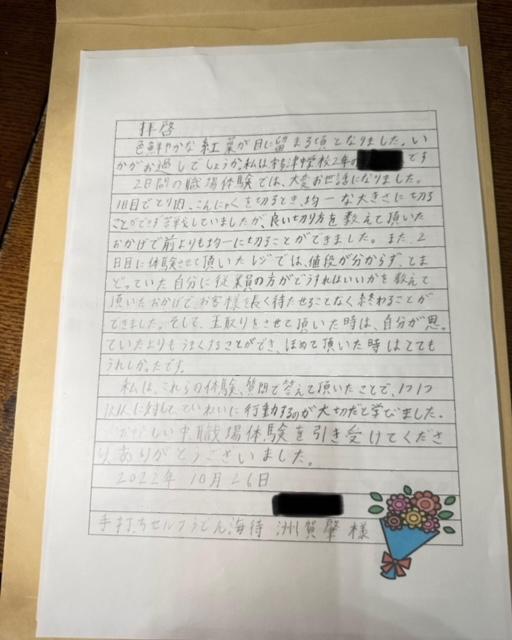 拝啓
色鮮やかな紅葉が目に留まる頃となりました。い
かがお過しでしょうか。私は本津中学校2年の です
2日間の職場体験では、大変お世話になりました。
1日目でとり肉、こんにゃくを切るとき、均一な大きさに切る
ことができず苦戦していましたが、良い切り方を教えて頂いた
おかげで前よりも均一に切ることができました。また、2
日目に体験させて頂いたレジでは、値段が分からず、とま
どっていた自分に従業員の方がどうすればいいかを教えて
頂いたおかげでお客様を長く待たせることなく終わることが
できました。そして、玉取りをさせて頂いた時は、自分が思っ
ていたよりもうまくすることができ、ほめて頂いた時はとても
うれしかったです。
私は、これらの体験、質問で答えて頂いたことで、1つ1つ
に対して、ていねいに行動するのが大切だと学びました。
おいそがしい中、職場体験を引き受けてくださ
り、ありがとうございました。
2022年 10月26日
手打ちセルフうどん海侍 洲賀肇 様